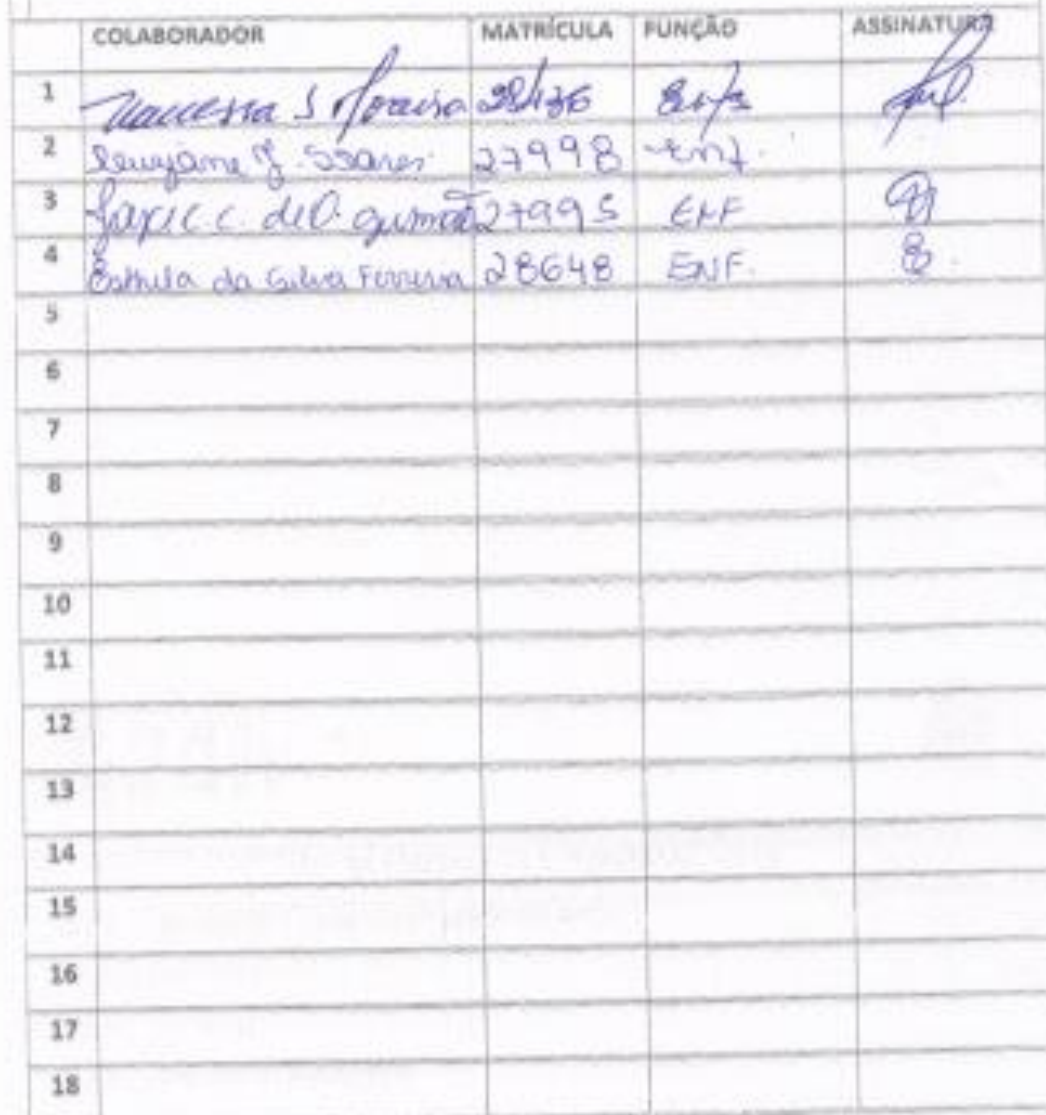 COLABORADOR MATRÍCULA FUNÇÃO ASSINATURA
1 Vanessa S Moreira
2 Soares 27998 Enf.
3 C. de O. gusmão 27995 ENF
4 Esthela da Silva Ferreira 28648 ENF.
5
6
7
8
9
10
11
12
13
14
15
16
17
18